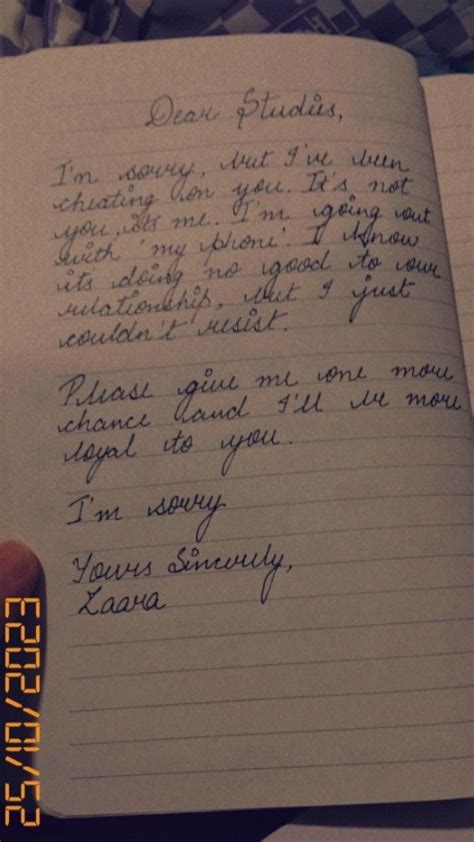 Dear Studies,
I'm sorry, but I've been
cheating on you. It's not
you, its me. I'm going out
with 'my phone'. I know
its doing no good to our
relationship, but I just
couldn't resist.
Please give me one more
chance and I'll be more
loyal to you.
I'm sorry
Yours Sincerely,
Zaara
25/10/2023